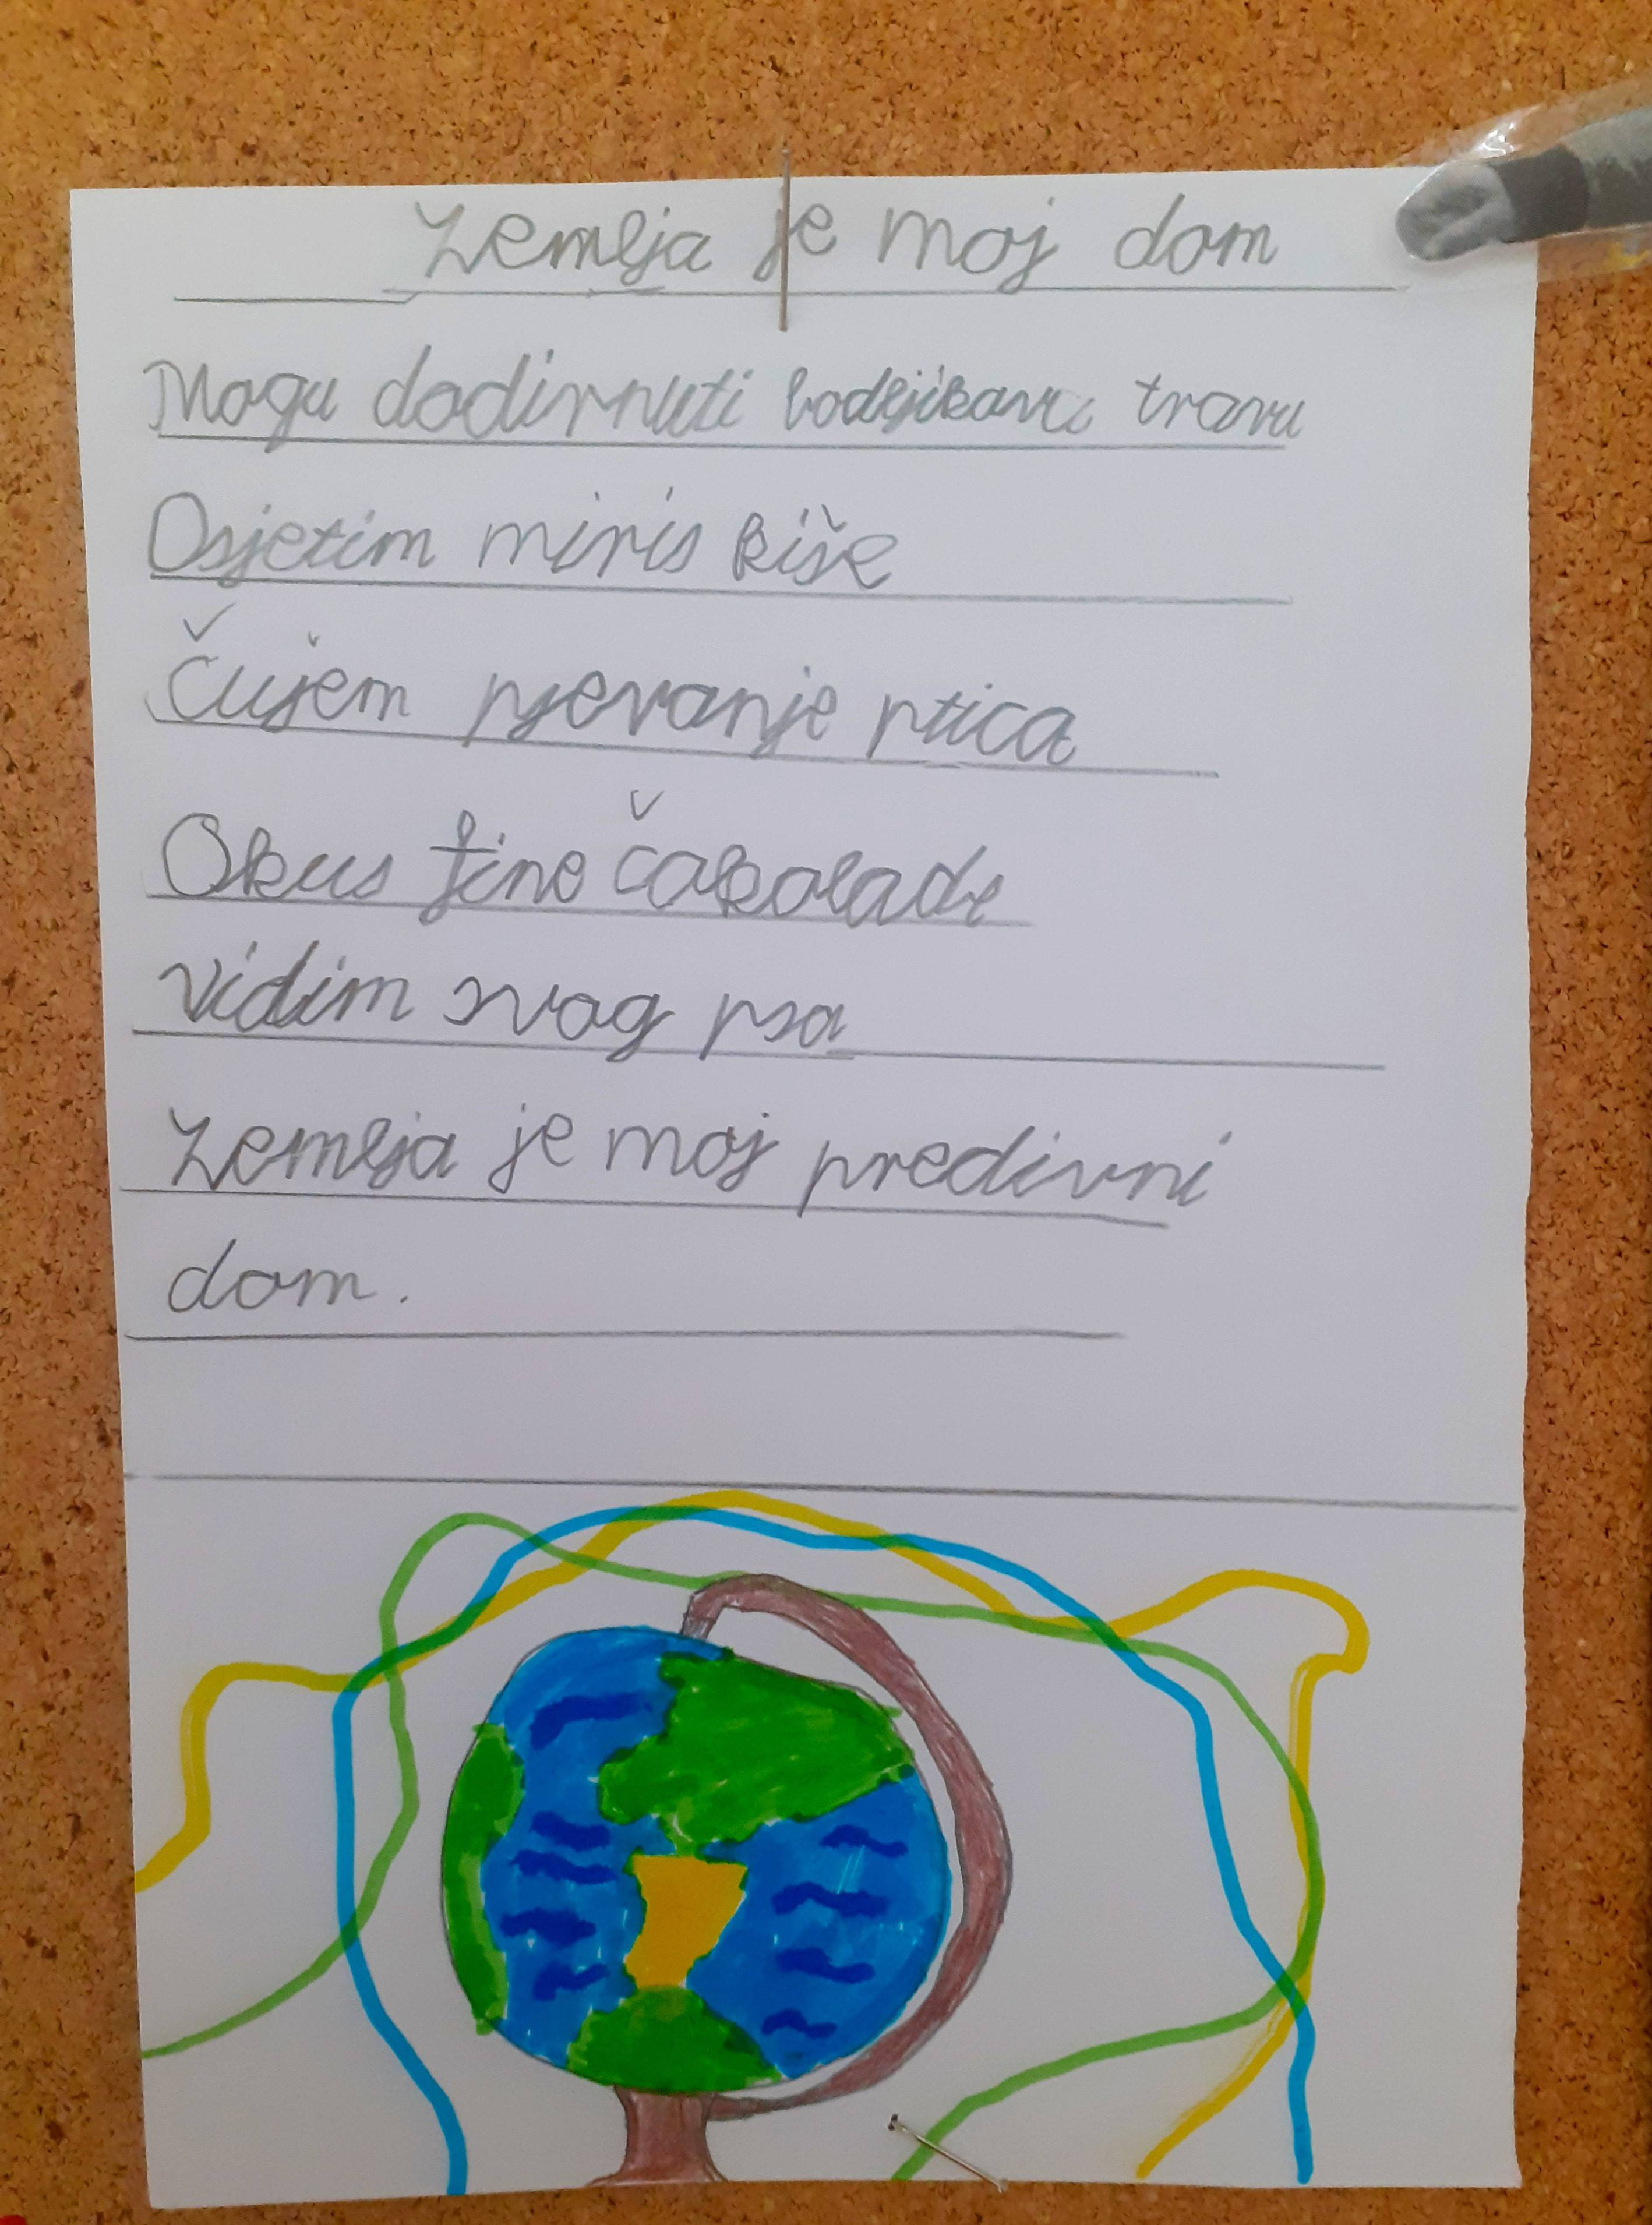 Zemlja je moj dom
Mogu dodirnuti bodljikavu travu
Osjetim miris kiše
Čujem pjevanje ptica
Okus fine čakolade
vidim svog psa
Zemlja je moj predivni
dom.